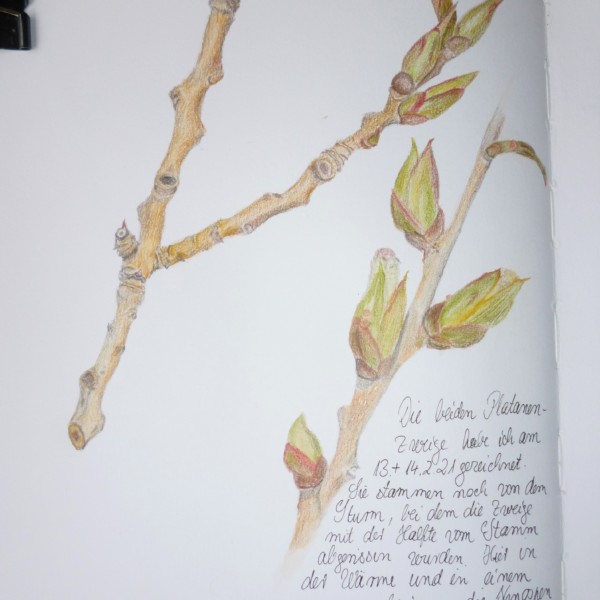 Die beiden Platanen-
Zweige habe ich am
13.+ 14.2.21 gezeichnet.
Sie stammen noch von dem
Sturm, bei dem die Zweige
mit der Hälfte vom Stamm
abgerissen wurden. Hier in
der Wärme und in einem
die Knospen